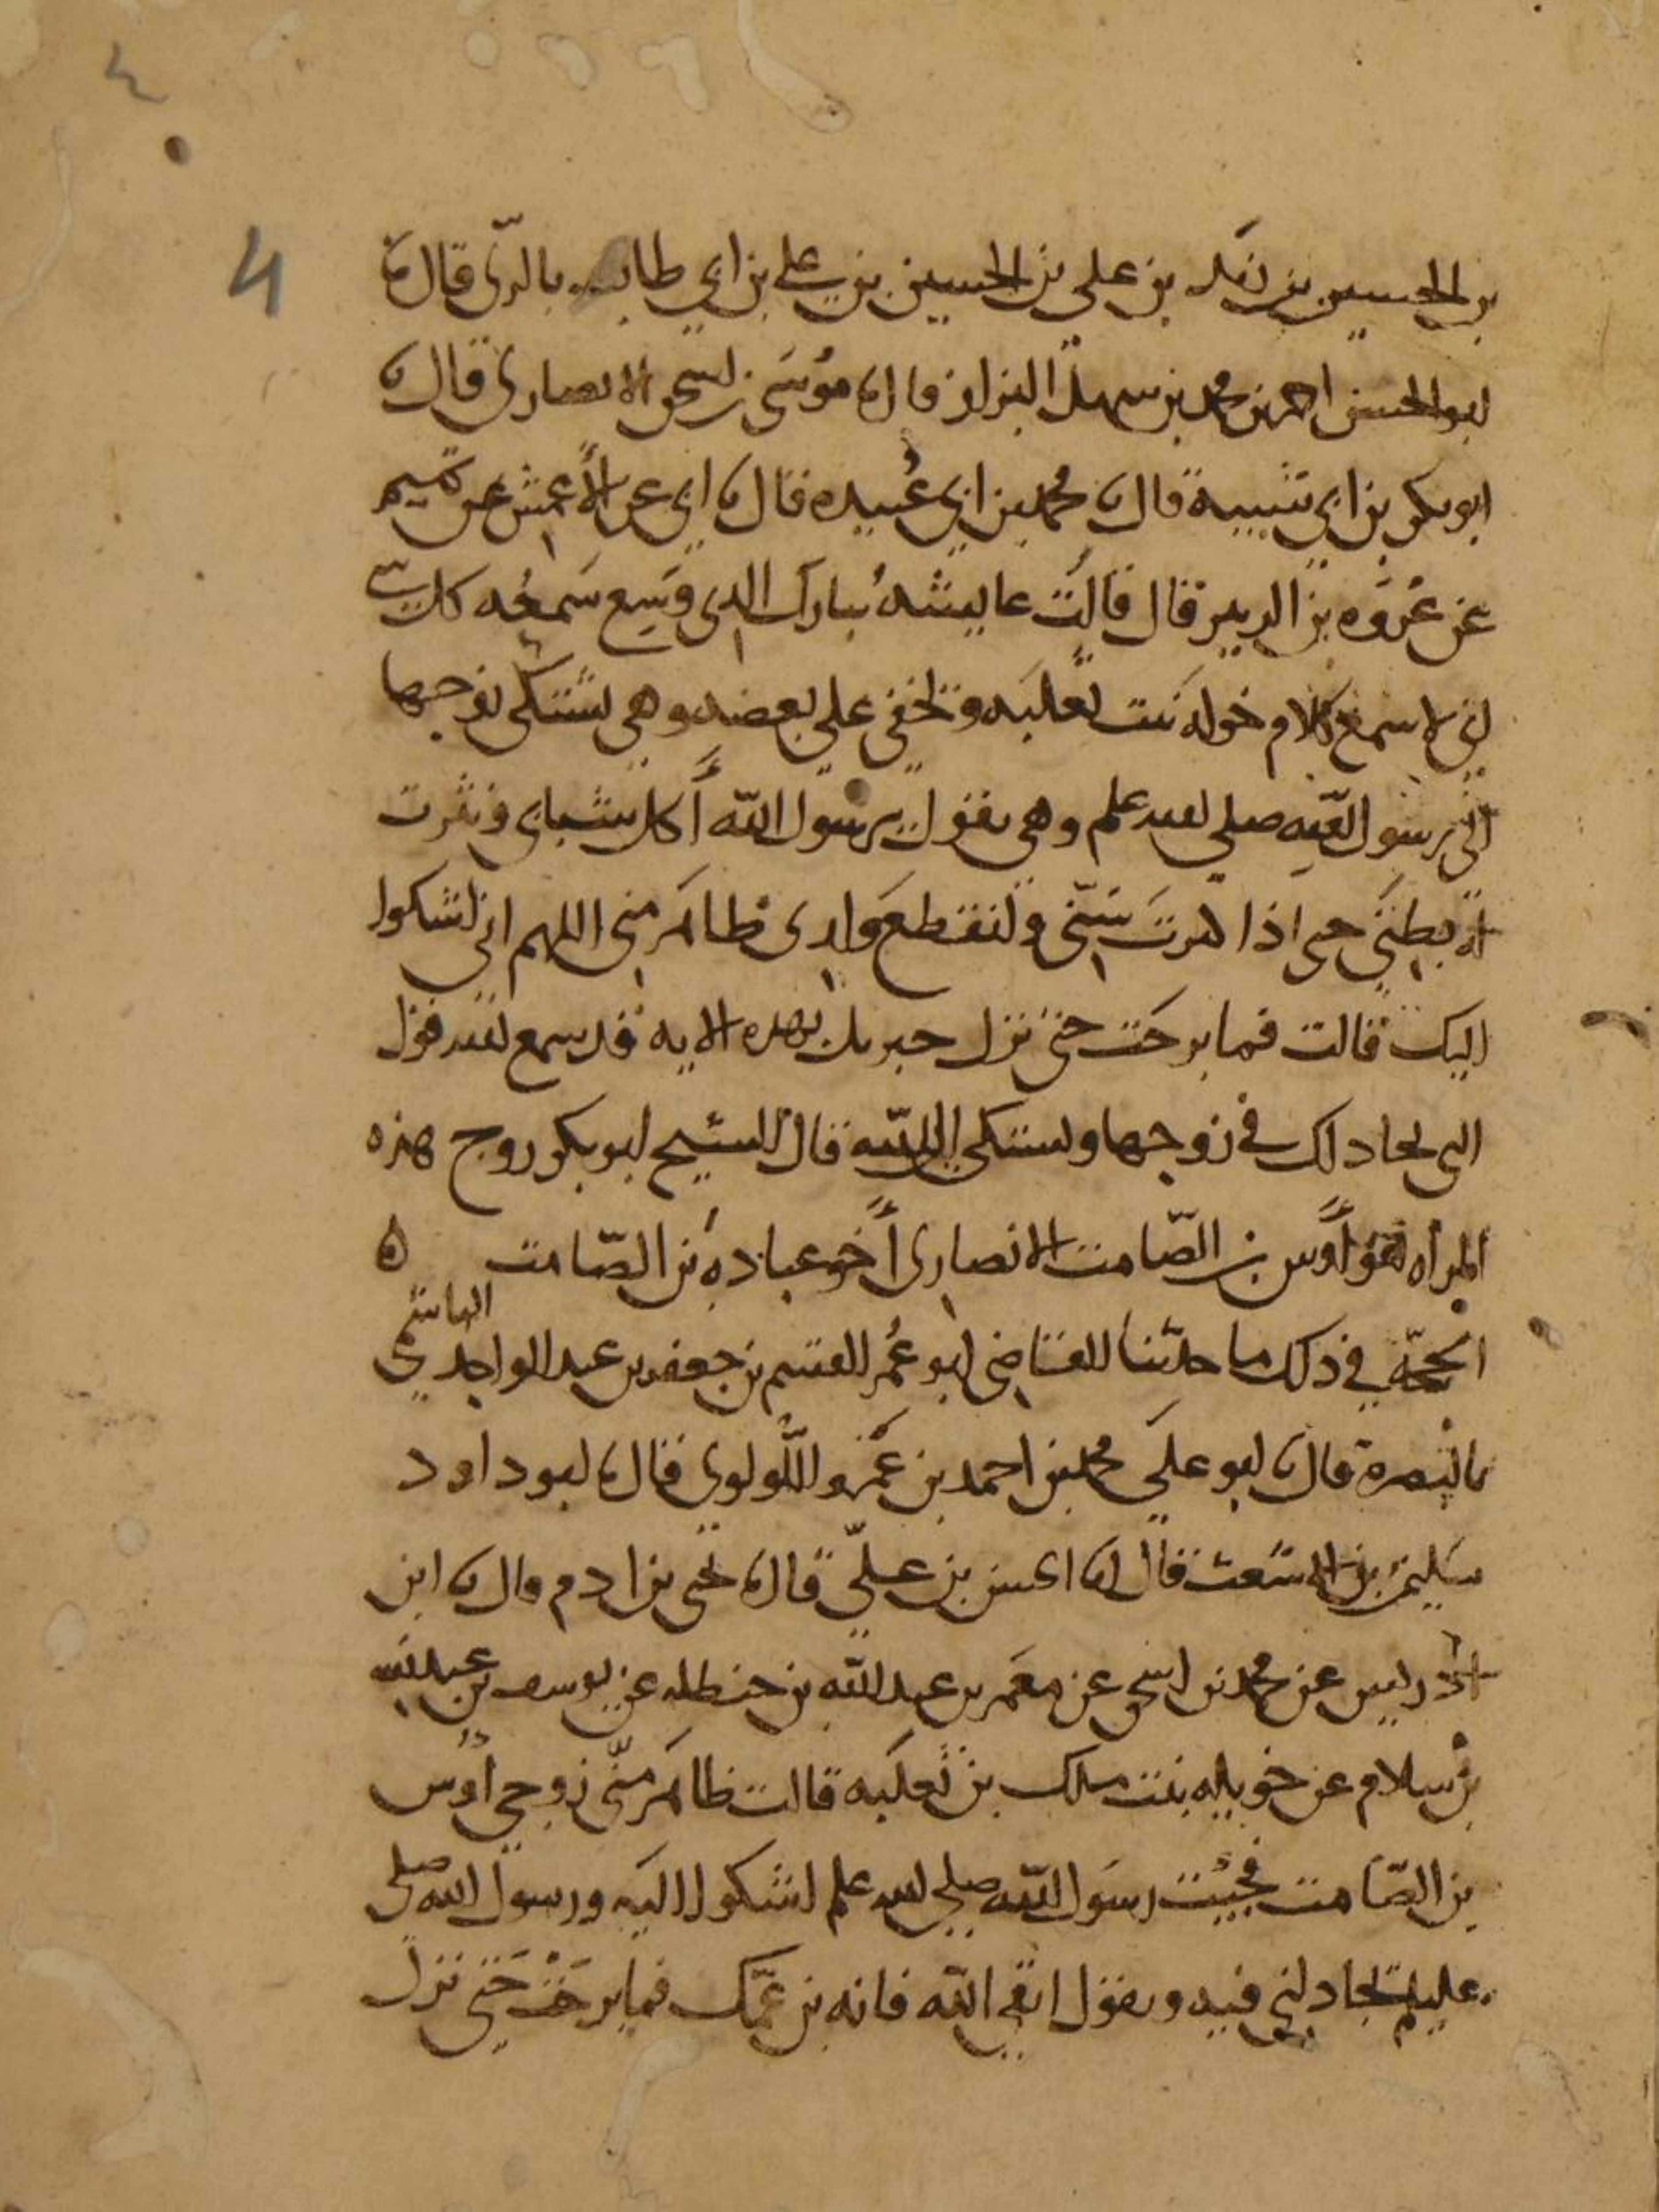 ٤
4
بن الحسين بن زيد بن علي بن الحسين بن علي بن ابي طالب بالري قال نا
ابو الحسن احمد بن محمد بن سهل البزاز قال نا موسى بن اسحق الانصاري قال نا
ابو بكر بن ابي شيبة قال نا محمد بن ابي عُبيده قال نا ابي عن الأعمش عن تميم
عن عُرْوه بن الزبير قال قالت عايشهُ تبارك الذي وَسِع سَمعُه كل شي
اني لاسمع كلام خولة بنت ثعلبَه وتخفى علي بعضه وهي تشتكي زوجها
الى رسول الله صلى الله عليه وسلم وهي تقول يرسول الله أكل شبابي ونثرت
له بطني حتى اذا كبرت سِنّي وانقطع وَلدي ظاهَر مني اللهم اني اشكوا
اليك قالت فما برحَت حتى نزل جبريل بهذه الايه قد سمع الله قول
التي تجادلك في زوجها وتشتكي الى الله قال الشيخ ابو بكر زوج هذه
المرأه هُوَ أوس بن الصّامت الانصاري أخو عبادهَ بن الصّامت ه
الحجّة في ذلك ما حدّثنا القاضي ابو عُمر القسم بن جعفر بن عبد الواحد الهاشمي
بالبصرة قال نا ابو علي محمد بن احمد بن عَمْرو اللّولوي قال نا ابو داود
سليمن بن الاشعث قال نا الحسن بن عليّ قال نا يحيى بن ادم قال نا ابن
ادريس عن محمد بن اسحق عن معَمر بن عبد الله بن حنظله عن يوسف بن عبد الله
بن سلام عن خويله بنت ملك بن ثعلبَه قالت ظاهَر منّي زوجي أوس
بن الصّامت فجيْت رسول الله صلى الله عليه وسلم اشكوا اليَه ورسول الله صلى
عليه وسلم يجادلني فيه ويقول اتقي الله فانه بن عمّك فما برحْت حَتى نزل